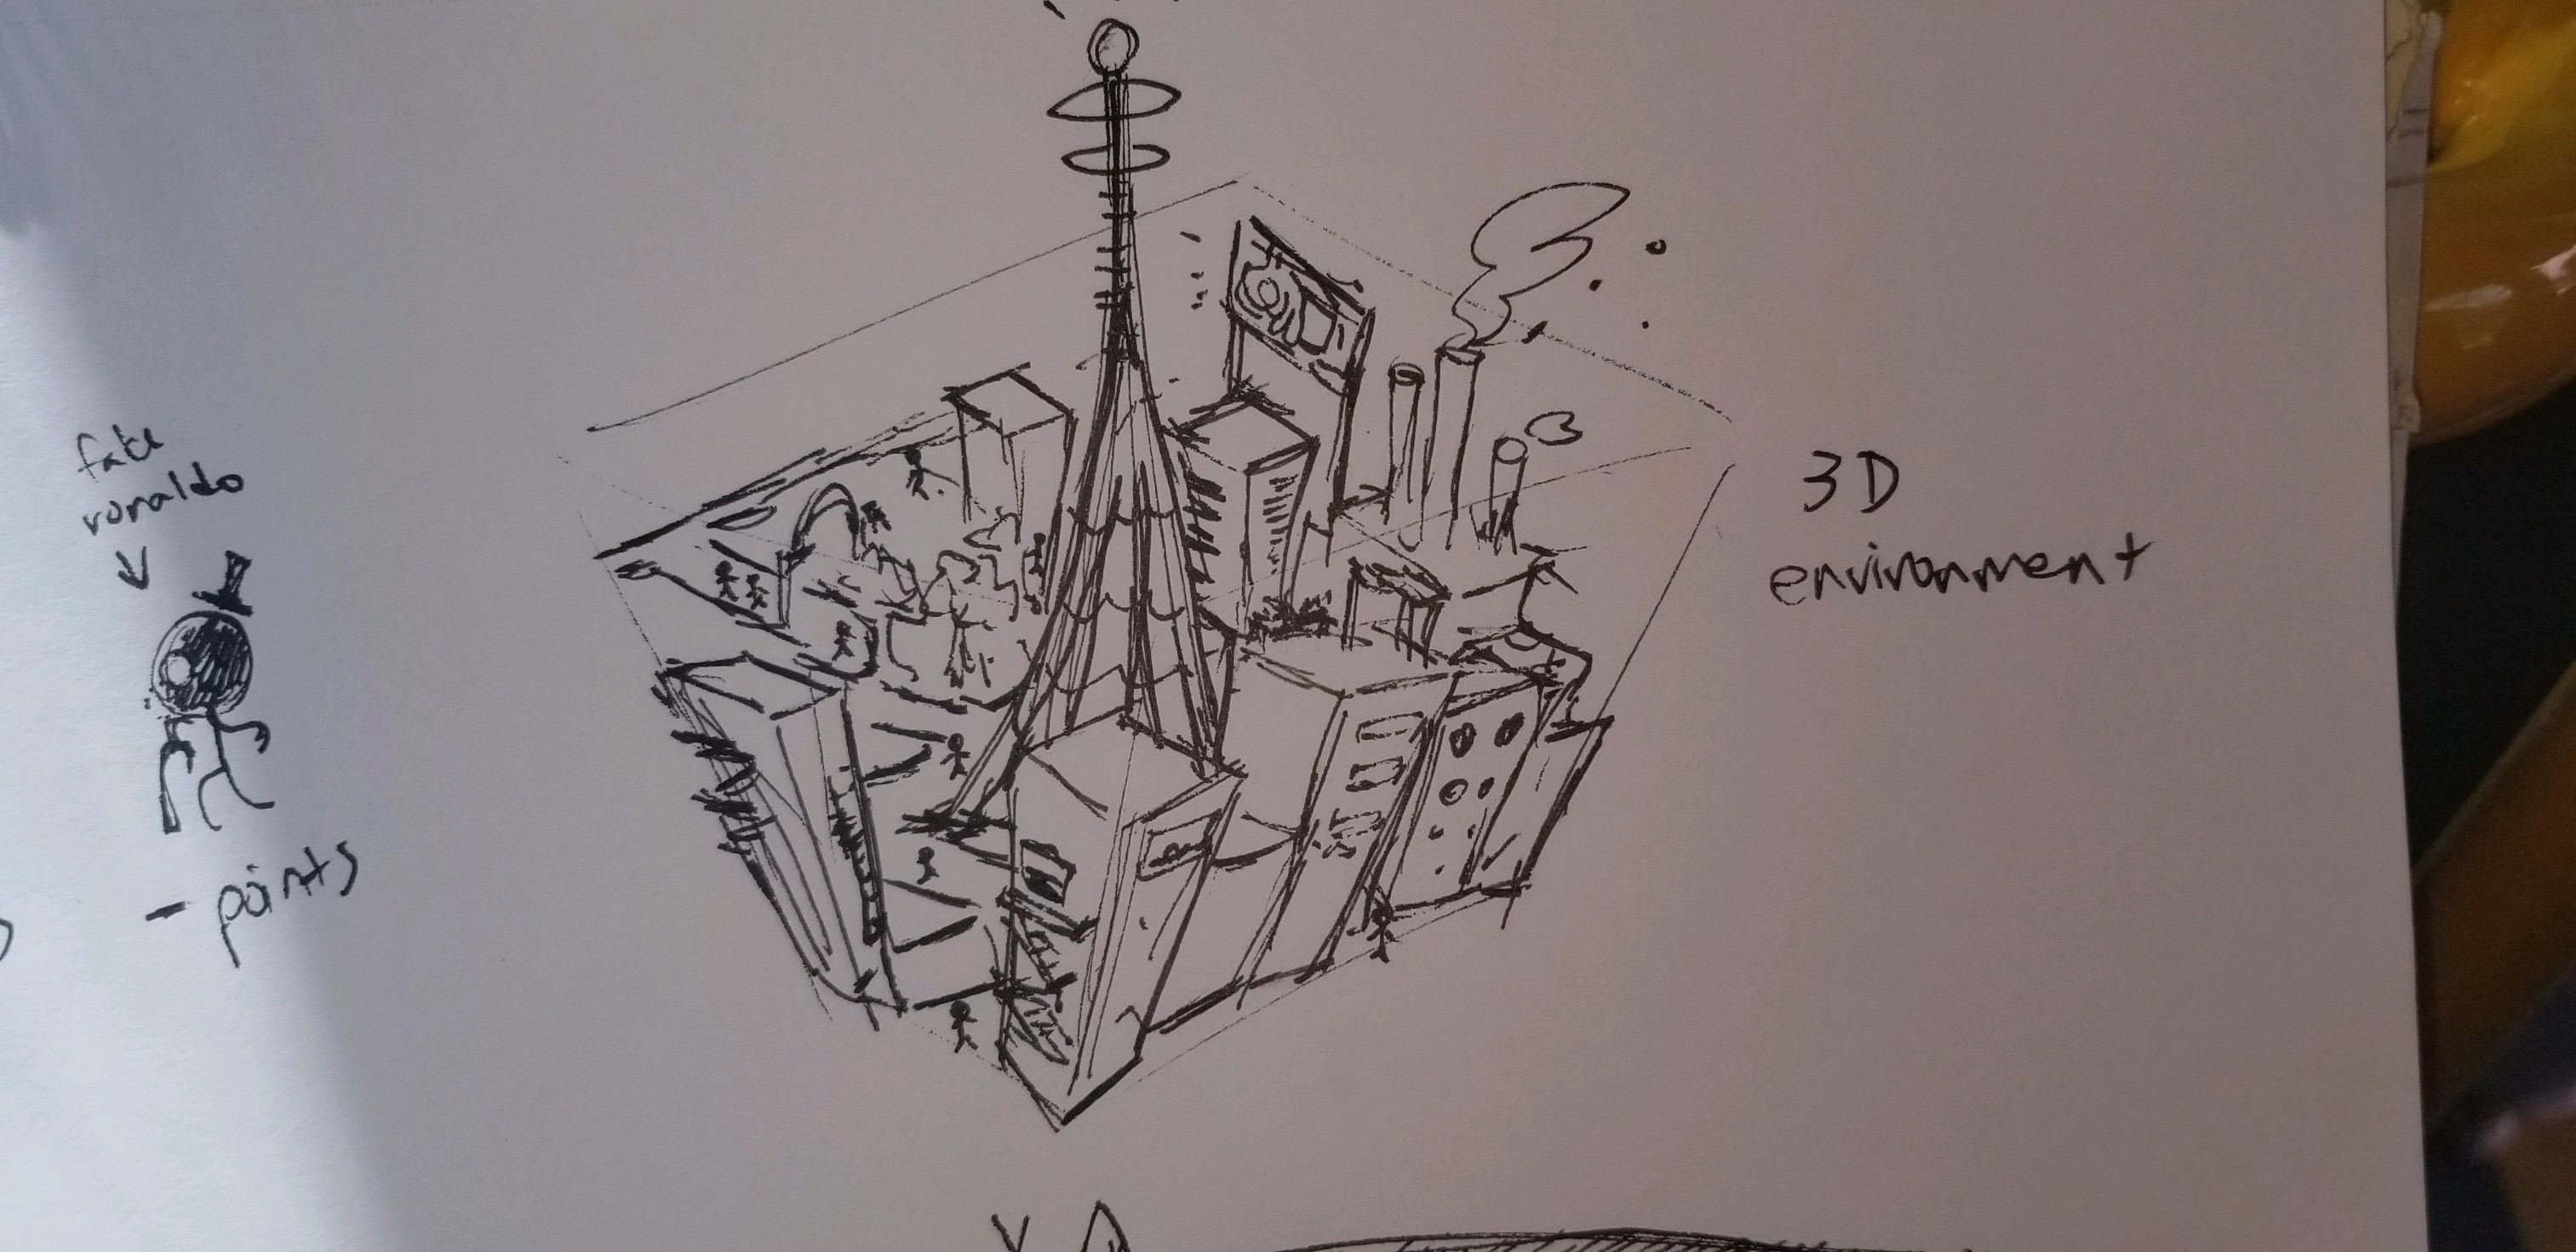 fake
ronaldo
- points
3D
environment